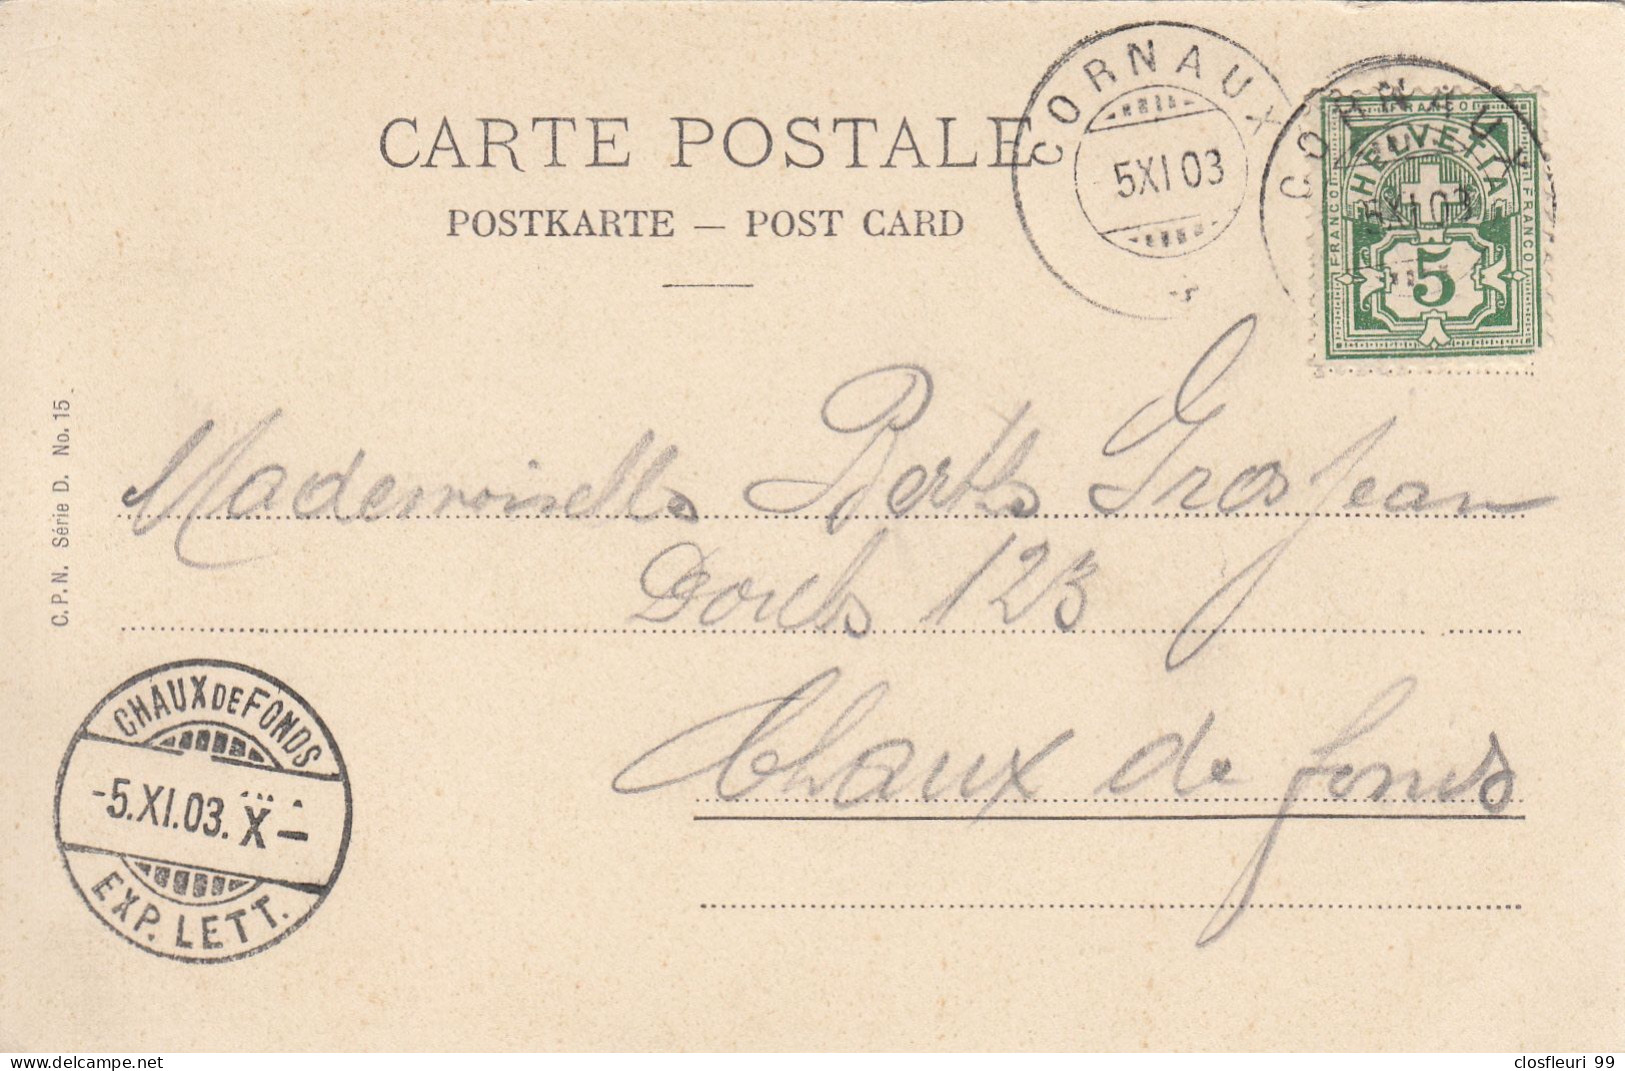 CORNAUX
5XI 03
CORNAUX
5XI 03
FRANCO
HELVETIA
FRANCO
FRANCO
5
CARTE POSTALE
POSTKARTE — POST CARD
C.P.N. Série D. No. 15
Mademoiselle Berthe Grosjean
Doubs 123
Chaux de fonds
CHAUX DE FONDS
-5.XI.03. X-
EXP. LETT.
closfleuri 99